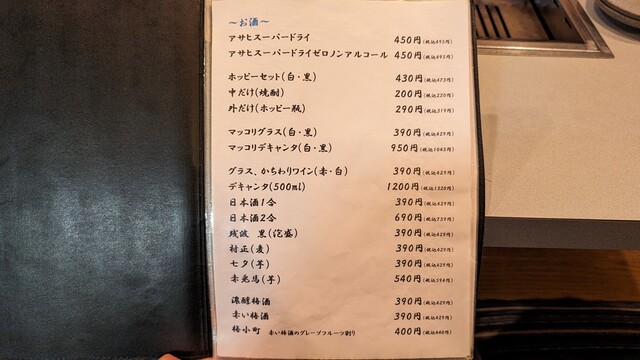 ～お酒～
アサヒスーパードライ 450円(税込495円)
アサヒスーパードライゼロノンアルコール 450円(税込495円)
ホッピーセット(白・黒) 430円(税込473円)
中だけ(焼酎) 200円(税込220円)
外だけ(ホッピー瓶) 290円(税込319円)
マッコリグラス(白・黒) 390円(税込429円)
マッコリデキャンタ(白・黒) 950円(税込1045円)
グラス、かちわりワイン(赤・白) 390円(税込429円)
デキャンタ(500ml) 1200円(税込1320円)
日本酒1合 390円(税込429円)
日本酒2合 690円(税込759円)
残波 黒(泡盛) 390円(税込429円)
村正(麦) 390円(税込429円)
七夕(芋) 390円(税込429円)
赤兎馬(芋) 540円(税込594円)
濃醇梅酒 390円(税込429円)
赤い梅酒 390円(税込429円)
梅小町 赤い梅酒のグレープフルーツ割り 400円(税込440円)